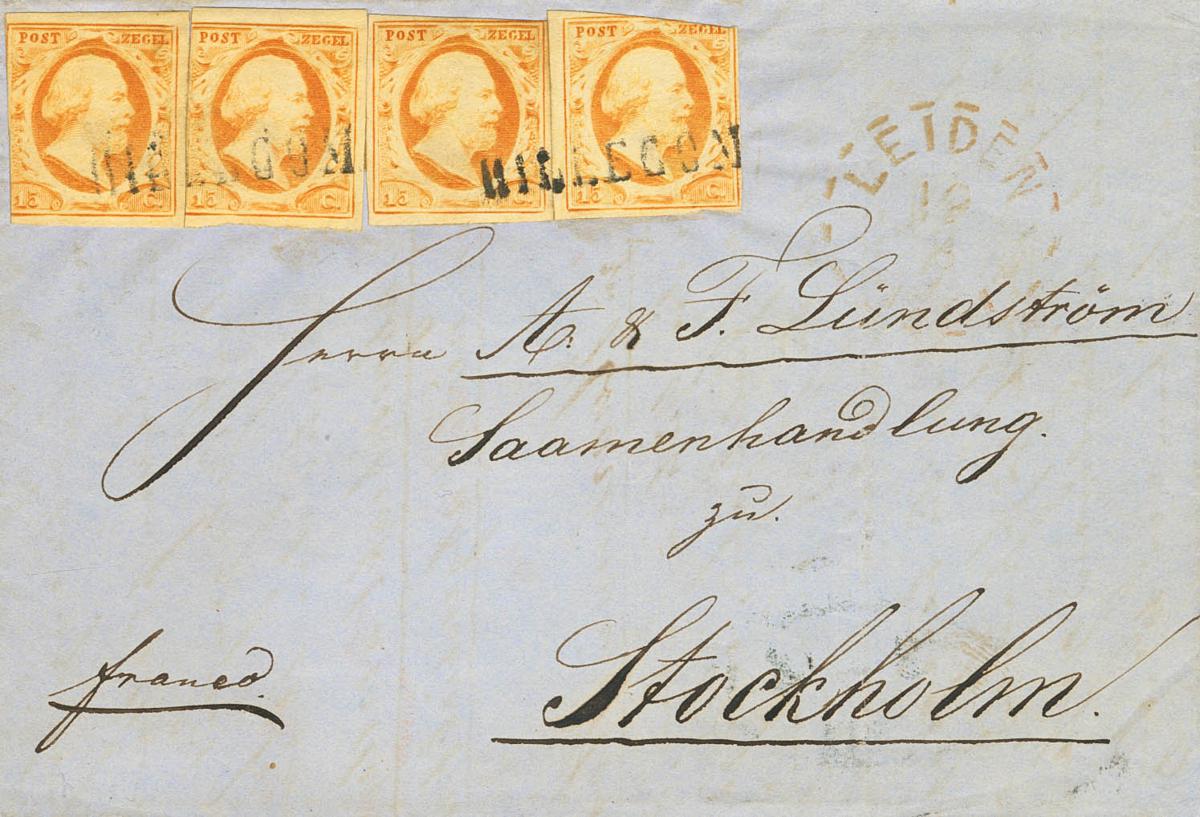 POST ZEGEL POST ZEGEL POST ZEGEL POST ZEGEL
HILLEGOM HILLEGOM
15 C. 15 C. 15 C. 15 C.
LEIDEN
Herrn A. & F. Lündström
Saamenhandlung.
zu.
Stockholm.
franco.